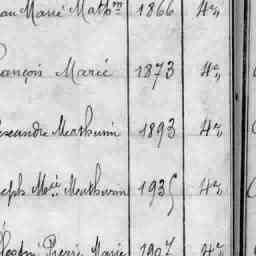 Marie Math.in 1866 4e,
rançois Marie 1873 4e,
lexandre Mathurin 1893 4e,
seph Mie Mathurin 1935 4e,
Pierre Marie 1907 4e